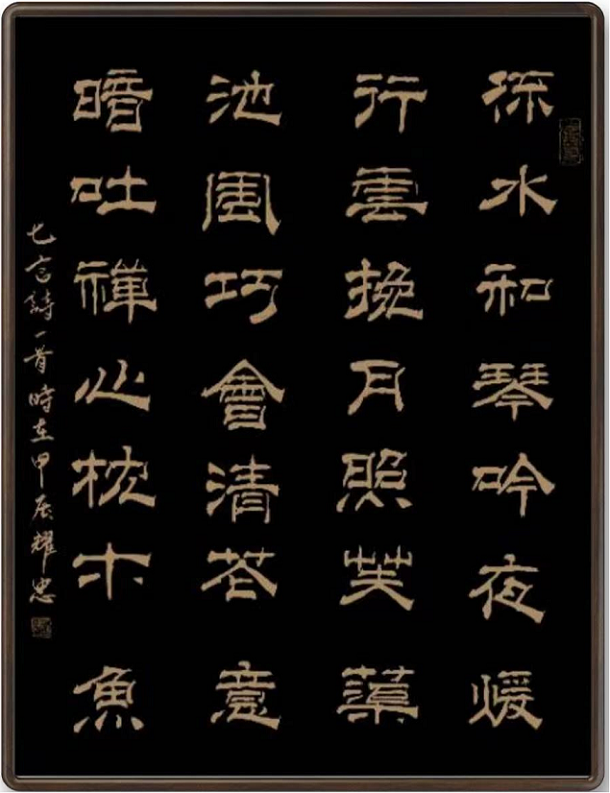 流水和琴吟夜煖
行雲挽月照芙蕖
池園巧會清花意
暗吐禪心枕木魚
七言詩一首時在甲辰耀忠